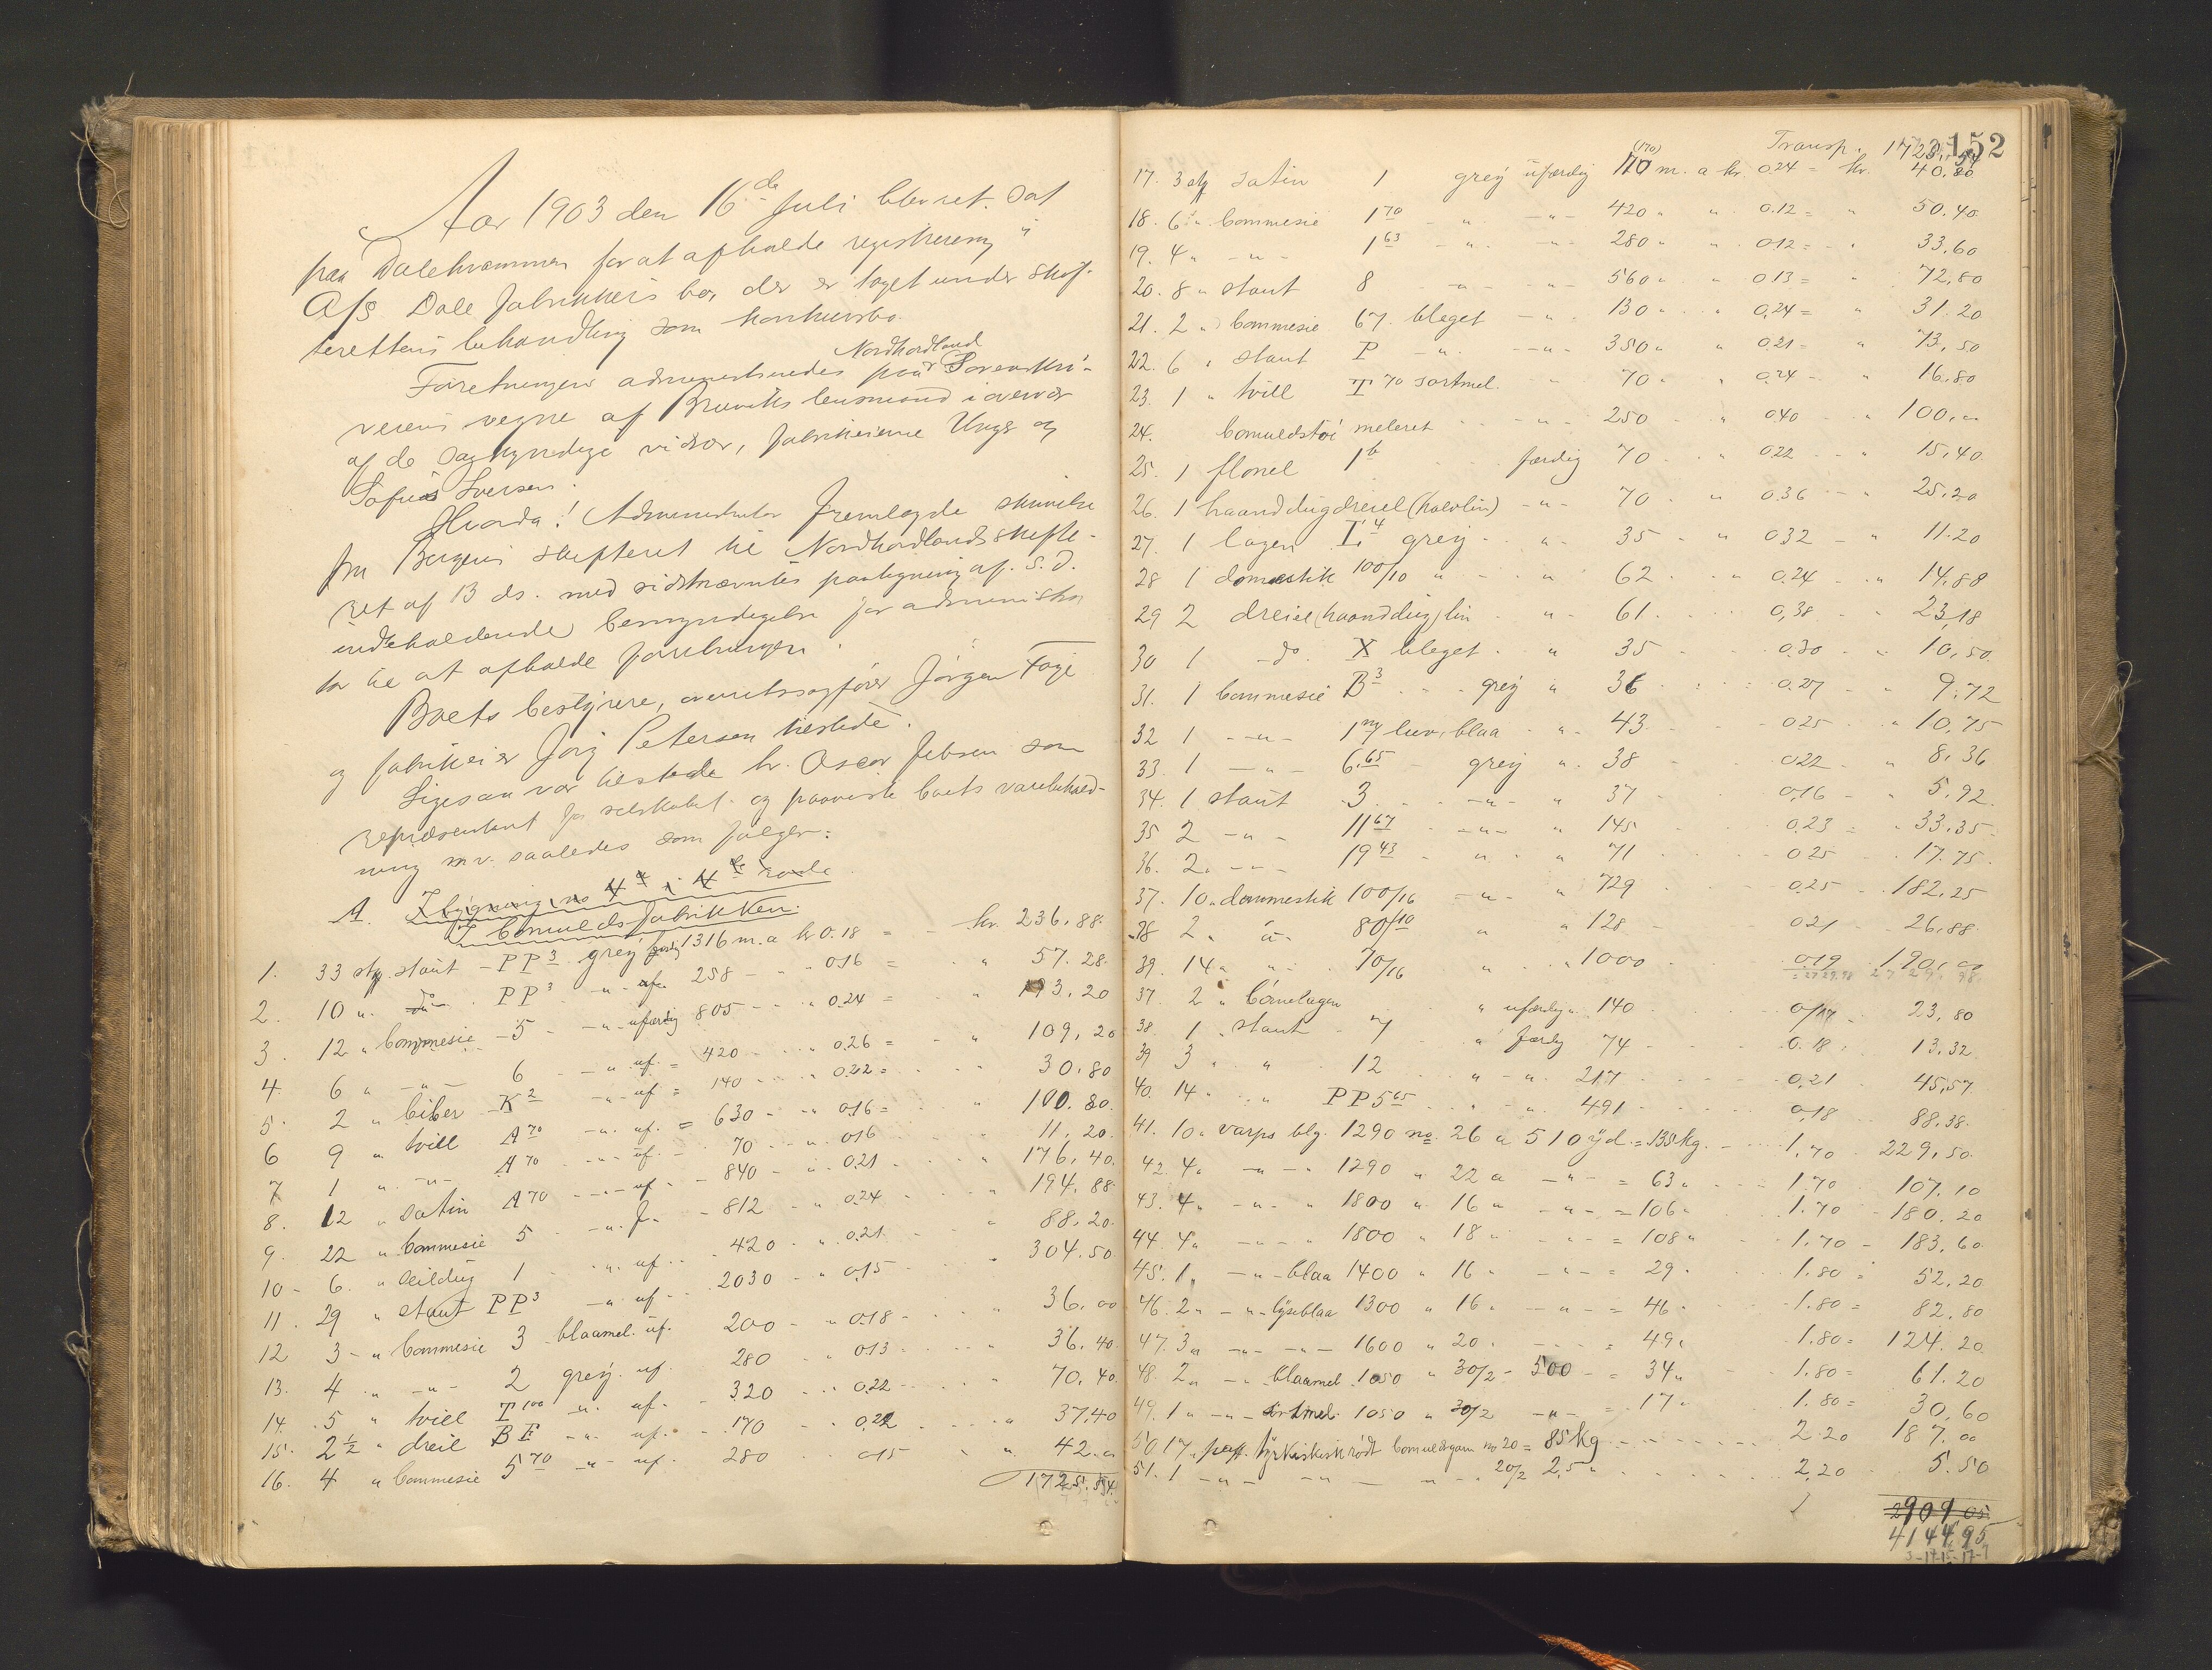 Aar 1903 den 16de Juli blev ret sat
paa Dalekvammen for at afholde registrering i
A/S Dale Fabrikkers bo, der er taget under skif-
terettens behandling som konkursbo.
Forretningen administreredes paa Nordhordland Sorenskri-
verens vegne af Bruviks lensmand i overvær
af de sagkyndige vidner, fabrikeierne Unger og
Sofus Iversen.
Hvorda! Administrator fremlagde skrivelse
fra Bergens skifteret til Nordhordlands skifte-
ret af 13 ds. med sidstnævntes paategning af s.d.
indeholdende bemyndigelse for administra
tor til at afholde forretningen.
Boets bestyrere, overretssagfører Jørgen Faye
og fabrikeier Joh. Petersen tilstede.
Ligesaa var tilstede hr. Oscar Jebsen som
repræsentant for selskabet og paaviste boets varebehold-
ning m.v. saaledes som følger:
A. I bygning no 4 i 4de rode
I bomuldsfabrikken:
1. 33 stk. staut PP3 grey færdig 1316 m. a kr 0.18 = kr. 236.88.
2. 10 " do PP3 - " - uf. 258 - " 0.16 = " 57.28.
3. 12 " bommesie 5 - " - ufærdig 805 - " 0.24 = " 193.20
4. 6 " - " - 6 - " - uf. = 420 - " 0.26 = " 109.20
5. 2 " biber K2 - " - uf = 140 - " 0.22 = " 30.80
6 9 " tvill A70 - " - uf. = 630 - " 0.16 = " 100.80.
7 1 " - " - A70 - " - uf. - 70 - " 0.16 " 11.20.
8. 12 " satin A70 - " - uf. - 840 - " 0.21 " 176.40.
9. 22 " bommesie 5 - " - f. - 812 - " 0.24 " 194.88
10 - 6 " seildug 1 - " - uf. 420 - " 0.21 " 88.20.
11. 29 " staut PP3 - " - uf. 2030 - " 0.15 " 304.50
12 3 - " bommesie 3 blaamel. uf. 200 - " 0.18 - " 36.00
13. 4 " - " - 2 grey. uf. 280 " 0.13 " 36.40.
14. 5 " tvill T100 - " - uf. - 320 " 0.22 " 70.40.
15. 2½ " dreil BF - " - uf. 170 " 0.22 " 37.40
16. 4 " bommesie 5 70 - " - uf. 280 0.15 " 42. "
1725.54.
152
Transp. 1725.54
17. 3 stk satin 1 grey ufærdig (170) 170 m. a kr. 0.24 = kr. 40.80
18. 6 " bommesie 1 70 - " - - " - 420 " " 0.12 = " 50.40.
19. 4 " - " - 1 63 - " - - " - 280 " " 0.12 = " 33.60
20. 8 " staut 8 - " - - " - 560 " " 0.13 = " 72.80
21. 2 " bommesie 67. bleget - " - 130 " " 0.24 = " 31.20
22. 6 " staut P - " - - " - 350 " " 0.21 = " 73.50
23. 1 " tvill T 70 sortmel. " 70 " " 0.24 - " 16.80
24. bomuldstøi meleret - " - 250 " 0.40 - " 100. "
25. 1 flonel 1b færdig 70 " 0.22 - " 15.40.
26. 1 haanddugdreiel (halvlin) - " - 70 " 0.36 - " 25.20
27. 1 lagen L4 grey " - 35 - " 0.32 - " 11.20
28 1 domestik 100/10 " - " 62 - " 0.24 - " 14.88
29 2 dreiel (haanddug) lin " - 61. 0.38 - " 23.18
30 1 - do. X bleget " 35 0.30 - " 10.50.
31. 1 bommesie B3 grey " 36 0.27 - " 9.72
32 1 - " - 1 luv. blaa " 43. 0.25 " 10.75
33. 1 - " - 6.65 - grey " 38 0.22 - " 8.36
34. 1 staut 3. - " - " 37 0.16 - " 5.92.
35 2 - " - 11 67 - " - " 145 0.23 = " 33.35
36. 2. - " - 19 43 " " 71 0.25 17.75.
37. 10 " dommestik 100/16 - " - " 729 0.25 - 182.25
38 2 " " 80/10 " " 128 0.21 26.88.
39. 14 " " 70/16 " " 1000 0.19 190.00
37. 2 " børnelagen " ufærdig " 140 0/17 23.80
38. 1 " staut 7 " færdig 74 0.18. 13.32
39 3 " " 12 " - " 217 0.21 45.57
40. 14 " " PP5 65 " - " 491 0.18 88.38.
41. 10 " varps blg. 1290 no. 26 a 510 yd. = 135 kg. 1.70 229.50.
42. 4 " - " - 1290 " 22 a - " - = 63 " 1.70 107.10
43. 4 " - " - " 1800 " 16 " - " - = 106 " 1.70 - 180.20
44. 4 " - " - " 1800 " 18 " - " - = 108 " 1.70 - 183.60
45. 1 " - " - blaa 1400 " 16 " - " - = 29 " 1.80 = 52.20
46. 2 " - " - lyseblaa 1300 " 16 " - " - = 46 " 1.80 = 82.80
47. 3 " - " - - " - 1600 " 20 " - = 49 " 1.80 = 124.20
48. 2 " - " - blaamel. 1050 " 30/2 - 500 - = 34 " 1.80 = 61.20
49. 1 " - " - sortmel. 1050 " 30/2 - " - = 17 " 1.80 = 30.60
50. 17 " tyrkiskrødt bomuldsgarn no 20 = 85 kg 2.20 187.00
51. 1 - " - - " - - " - 20/2 2.5 " 2.20 5.50
2909 05
4144 95